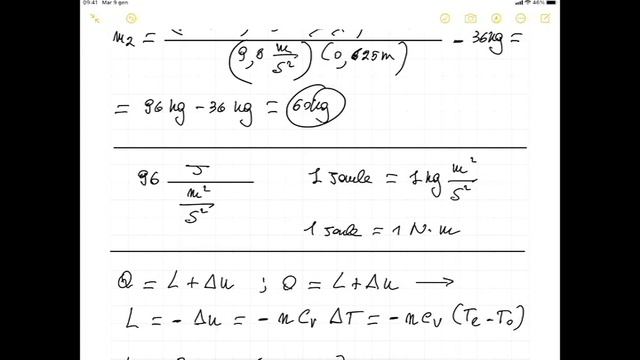 09.41 Mar 9 gen
46%
m₂ = (9,8 m/s²) (0,625m) - 36kg =
= 96 kg - 36 kg = 60kg
96 J / m²/s² 1 Joule = 1 kg m²/s²
1 Joule = 1 N·m
Q = L + Δu ; Q = L + Δu →
L = - Δu = - n Cv ΔT = - n cv (Te - To)